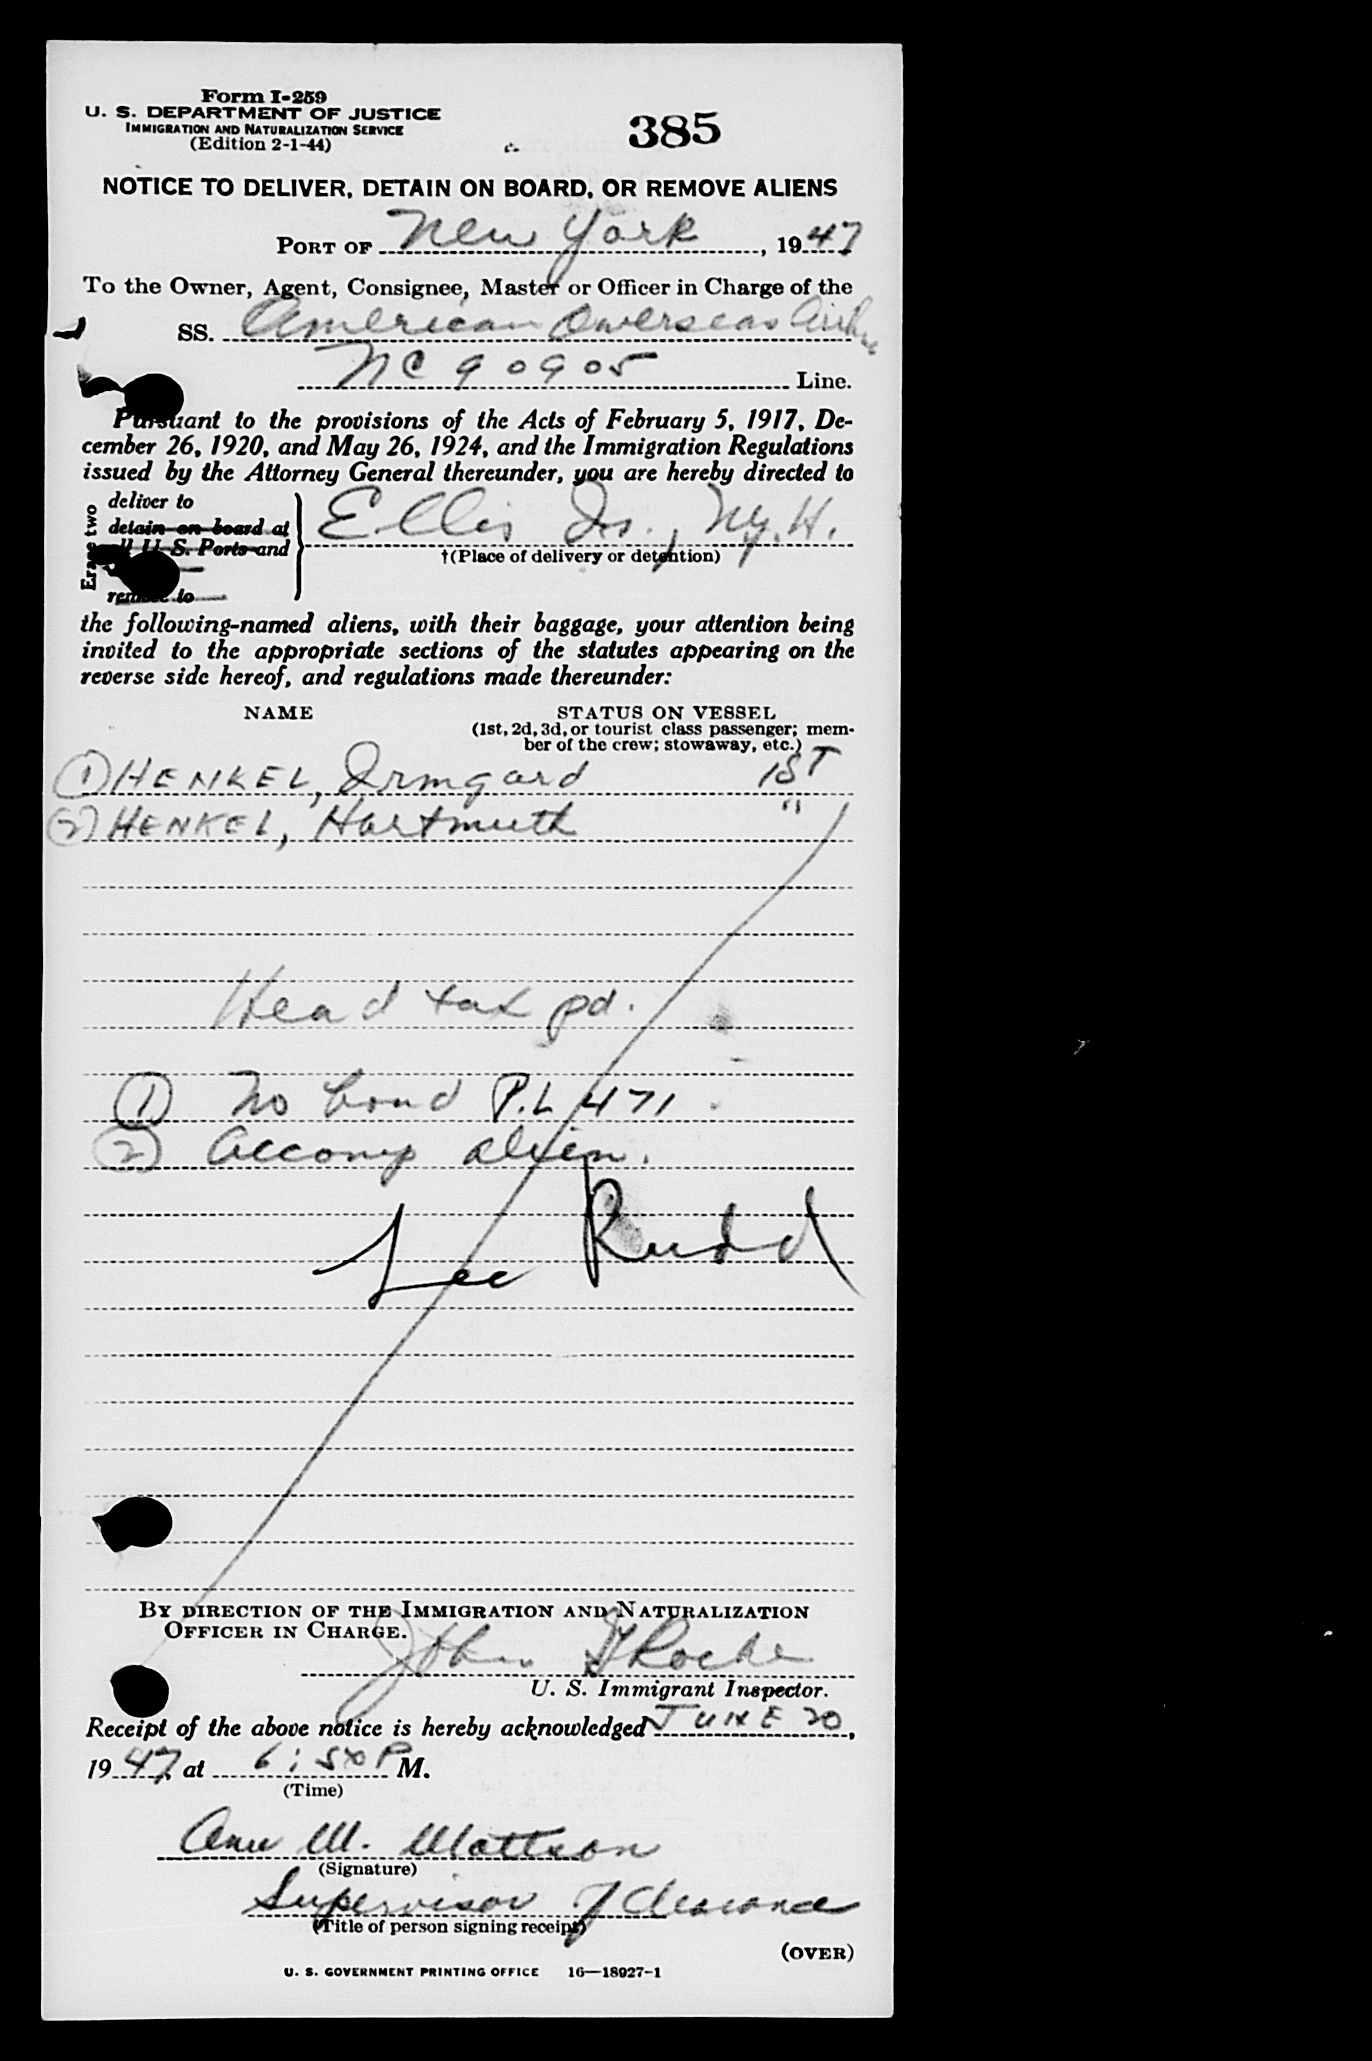 Form I-259
U. S. DEPARTMENT OF JUSTICE
IMMIGRATION AND NATURALIZATION SERVICE
(Edition 2-1-44)
385
NOTICE TO DELIVER, DETAIN ON BOARD, OR REMOVE ALIENS
PORT OF New York, 1947
To the Owner, Agent, Consignee, Master or Officer in Charge of the
SS. American Overseas Airline
NC 90905 Line.
Pursuant to the provisions of the Acts of February 5, 1917, De-
cember 26, 1920, and May 26, 1924, and the Immigration Regulations
issued by the Attorney General thereunder, you are hereby directed to
Erase two
deliver to
detain on board at
all U. S. Ports and
remove to
Ellis Is., N.Y.H.
†(Place of delivery or detention)
the following-named aliens, with their baggage, your attention being
invited to the appropriate sections of the statutes appearing on the
reverse side hereof, and regulations made thereunder:
NAME STATUS ON VESSEL
(1st, 2d, 3d, or tourist class passenger; mem-
ber of the crew; stowaway, etc.)
(1) HENKEL, Irmgard 1ST
(2) HENKEL, Hartmuth "
Head tax pd.
(1) No bond P.L 471.
(2) Accomp alien.
Lee Rudd
BY DIRECTION OF THE IMMIGRATION AND NATURALIZATION
OFFICER IN CHARGE.
John Roche
U. S. Immigrant Inspector.
Receipt of the above notice is hereby acknowledged JUNE 20,
1947, at 6:50 P M.
(Time)
Ann M. Mattson
(Signature)
Supervisor of Clearance
(Title of person signing receipt)
(OVER)
U. S. GOVERNMENT PRINTING OFFICE 16—18927-1